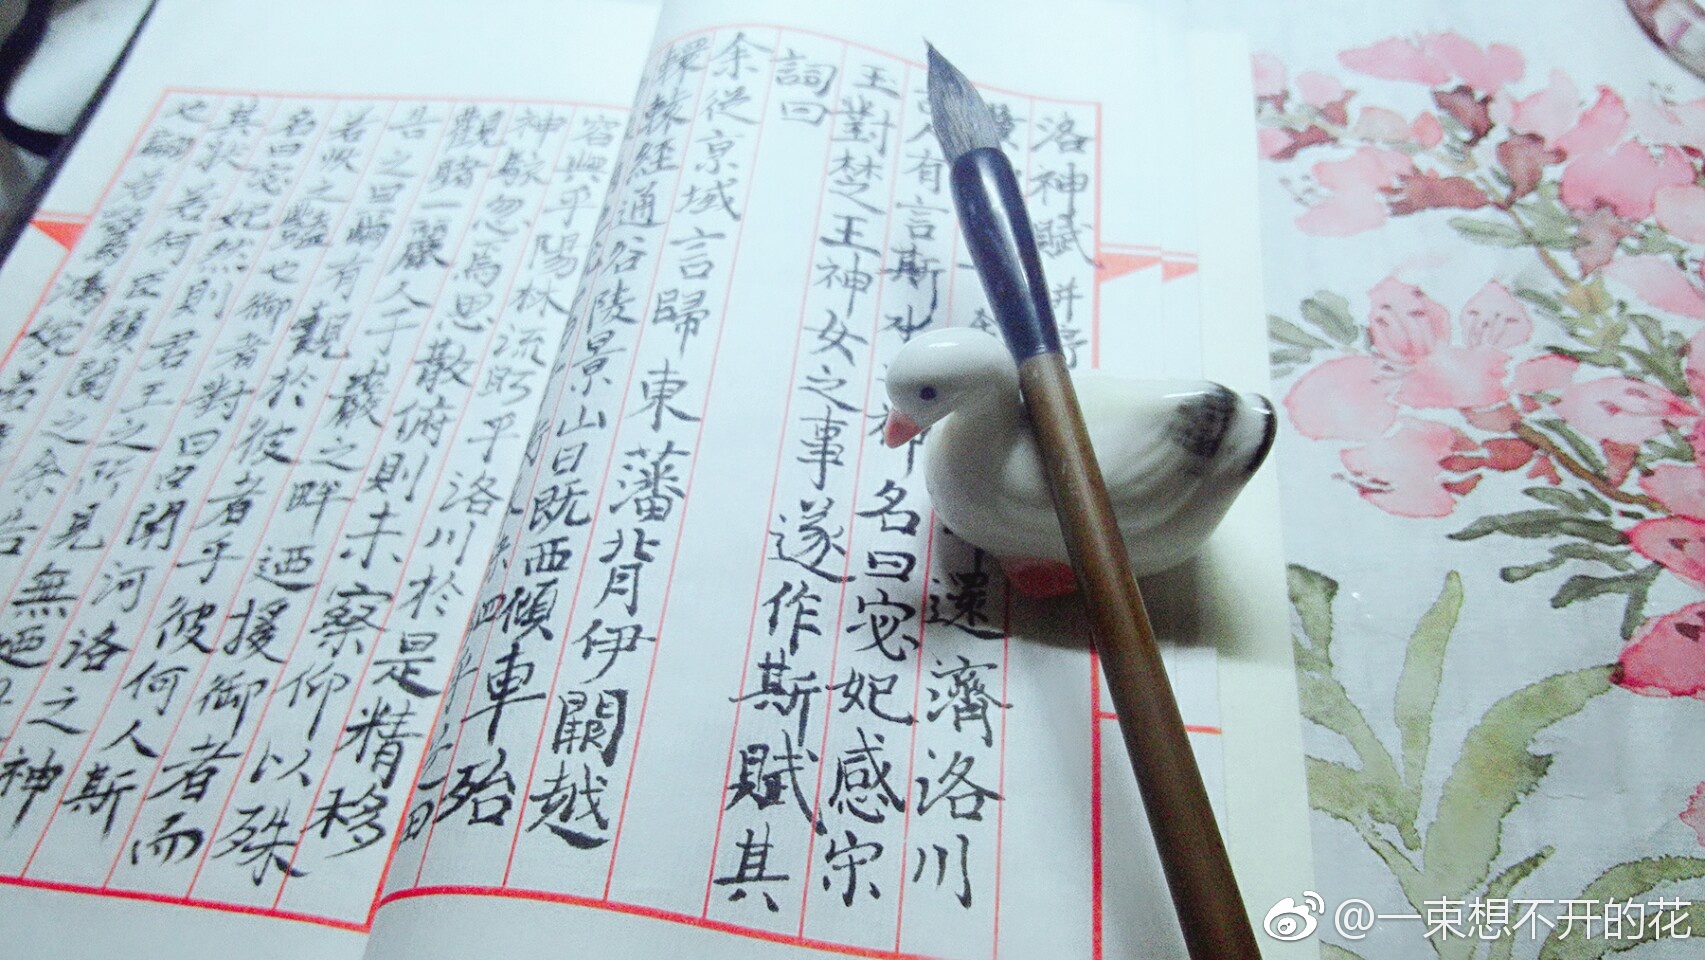 洛神賦 并序
還濟洛川
古人有言斯水 神名曰宓妃感宋
王對楚王神女之事遂作斯賦其
詞曰
余從京域言歸東藩背伊闕越
轘轅經通谷陵景山日既西傾車殆
容與乎陽林流眄乎洛川於是精移
神駭忽焉思散俯則未察仰以殊
觀睹一麗人于巖之畔迺援御者而
告之曰爾有觀於彼者乎彼何人斯
若 之豔也御者對曰臣聞河洛之神
名曰宓妃然則君王之所見無迺
其狀若何臣願聞之余告
也翩若驚鴻婉若
@一束想不开的花